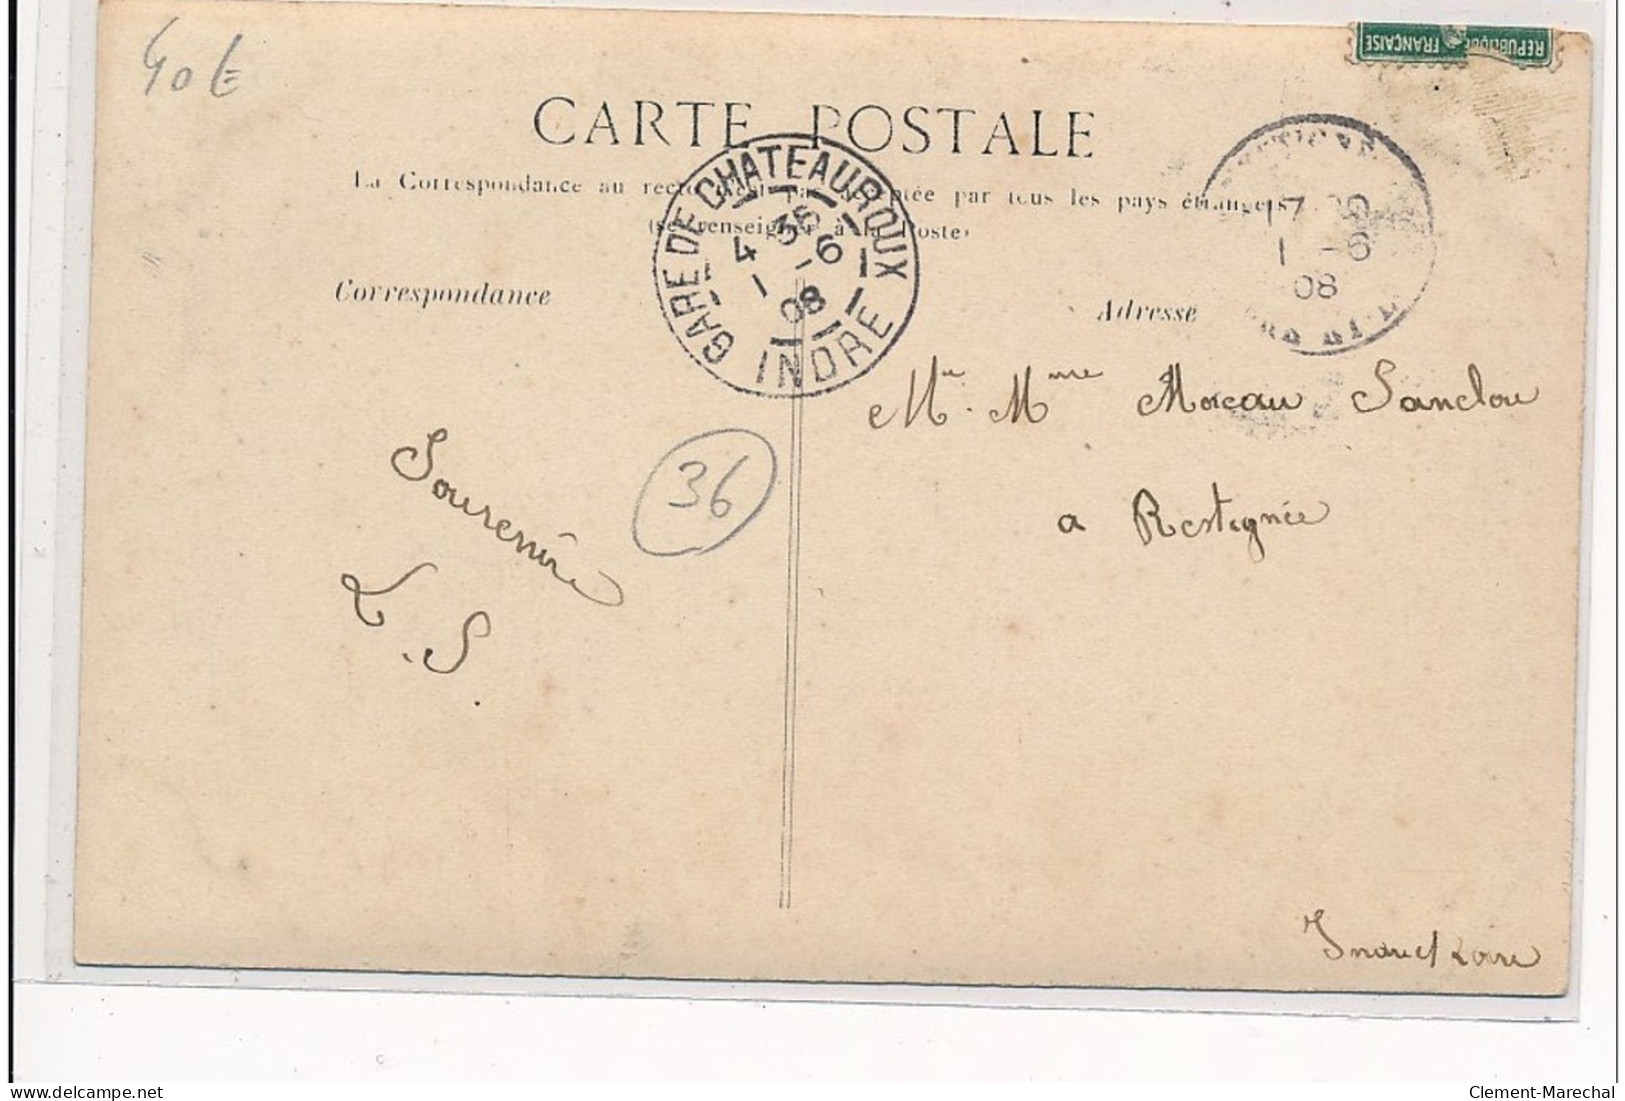 40€
RÉPUBLIQUE FRANÇAISE
CARTE POSTALE
La Correspondance au recto n'est pas acceptée par tous les pays étrangers
(se renseigner à la Poste)
GARE DE CHATEAUROUX
4 35
1 - 6
08
INDRE
17
1 - 6
08
Correspondance
Adresse
Mr. Mme Moreau Sanclou
a Restignée
Souvenir
L. S.
36
Indre et Loire
Clement-Marechal